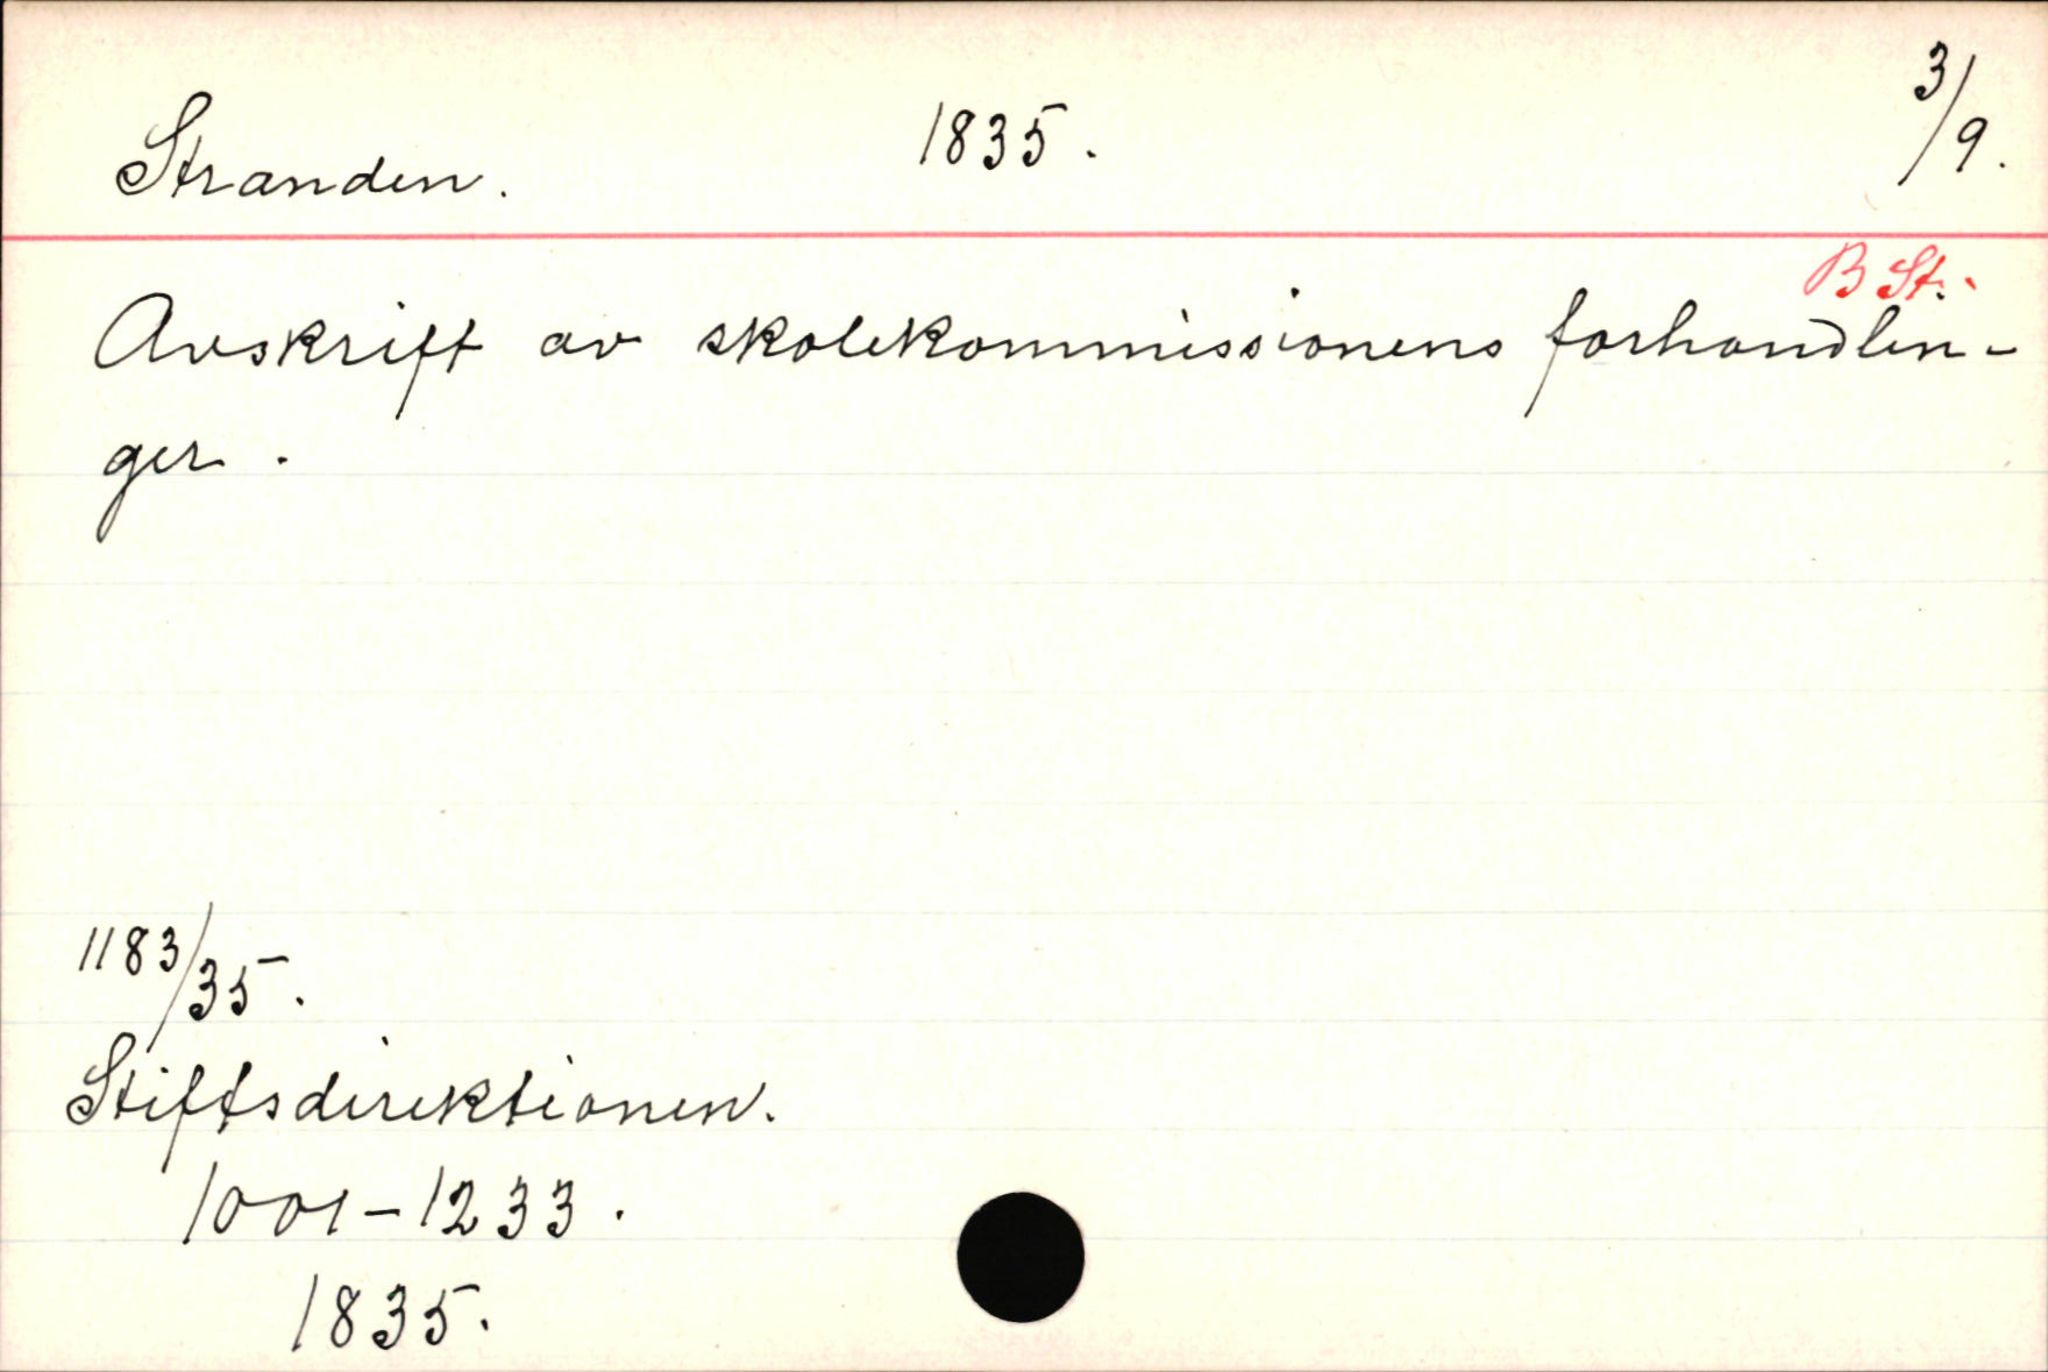 Stranden. 1835. 3/9.
B St.
Avskrift av skolekommissionens forhandlin-
ger.
1183/35.
Stiftsdirektionen.
1001-1233.
1835.